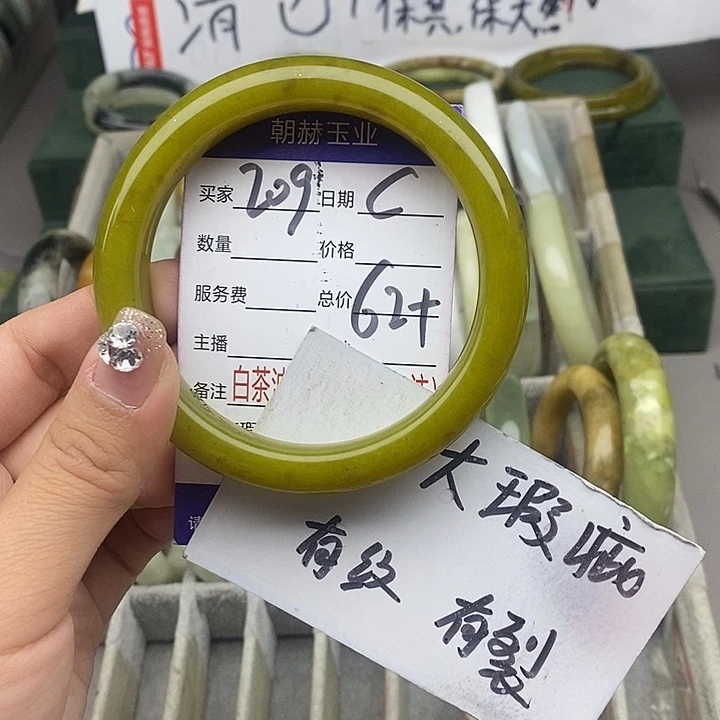 清
保真.保天然
朝赫玉业
买家 209 日期 C
数量 价格
服务费 总价 62+
主播
备注 白茶
大瑕疵
有纹 有裂
请